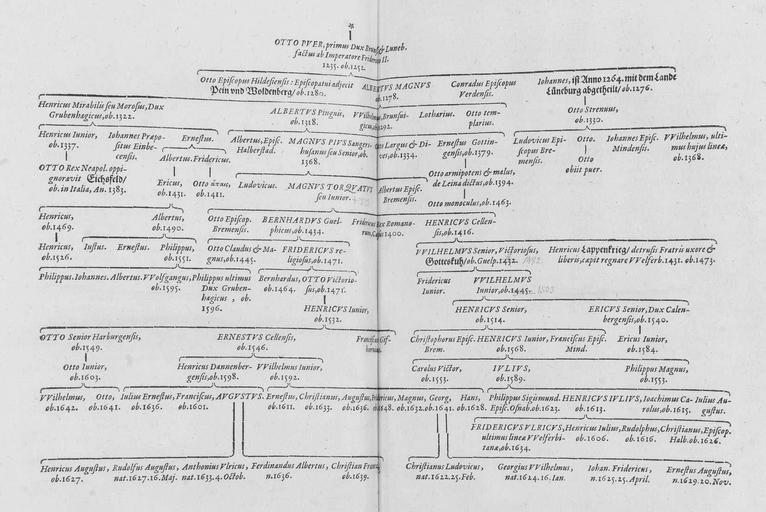 *
OTTO PVER, primus Dux Brunsv. & Luneb.
factus ab Imperatore Friderico II.
1235. ob. 1252.
Otto Episcopus Hildesiensis: Episcopatui adjecit
Pein vnd Woldenberg/ ob. 1280.
ALBERTVS MAGNVS
ob. 1278.
Conradus Episcopus
Verdensis.
Iohannes, ist Anno 1264. mit dem Lande
Lüneburg abgetheilt/ ob. 1276.
Henricus Mirabilis seu Morosus, Dux
Grubenhagicus, ob. 1322.
ALBERTVS Pinguis,
ob. 1318.
VVilhelmus, Brunsui-
gicus, ob. 1292.
Lotharius.
Otto tem-
plarius.
Otto Strenuus,
ob. 1330.
Henricus Iunior,
ob. 1337.
Iohannes Prapo-
situs Einbe-
censis.
Ernestus.
Albertus, Episc.
Halberstad.
MAGNVS PIVS Sanger-
husanus seu Senior, ob.
1368.
Largus & Di-
ves, ob. 1334.
Ernestus Gottin-
gensis, ob. 1379.
Ludovicus Epi-
scopus Bre-
mensis.
Otto.
Iohannes Episc.
Mindensis.
VVilhelmus, ulti-
mus hujus lineæ,
ob. 1368.
Otto
obiit puer.
OTTO Rex Neapol. oppi-
gnoravit Eichsfeld/
ob. in Italia, An. 1383.
Albertus. Fridericus.
Ericus,
ob. 1431.
Otto
ob. 1411.
Ludovicus.
MAGNVS TORQVATVS
seu Iunior.
Albertus Episc.
Bremensis.
Otto armipotens & malus,
de Leina dictus, ob. 1394.
Otto monoculus, ob. 1463.
Henricus,
ob. 1469.
Albertus,
ob. 1490.
Otto Episcop.
Bremensis.
BERNHARDVS Guel-
phicus, ob. 1434.
Fridericus Rex Romano-
1400.
HENRICVS Cellen-
sis, ob. 1416.
Henricus,
ob. 1526.
Iustus.
Ernestus.
Philippus,
ob. 1551.
Otto Claudus & Ma-
gnus, ob. 1445.
FRIDERICVS re-
ligiosus, ob. 1471.
VVILHELMVS Senior, Victoriosus,
Gotteskuh/ ob. Guelp. 1432. 1482.
Henricus Lappenkrieg/ destrusi Fratris uxore &
liberis, capit regnare VVelferb. 1431. ob. 1473.
Philippus. Iohannes. Albertus. VVolfgangus, Philippus ultimus
ob. 1595.
Dux Gruben-
hagicus, ob.
1596.
Bernhardus,
ob. 1464.
OTTO Victorio-
sus, ob. 1471.
Fridericus
Iunior.
VVILHELMVS
Iunior, ob. 1445. 1503
HENRICVS Iunior,
ob. 1532.
HENRICVS Senior,
ob. 1514.
ERICVS Senior, Dux Calen-
bergensis, ob. 1540.
OTTO Senior Harburgensis,
ob. 1549.
ERNESTVS Cellensis,
ob. 1546.
Franciscus Gif-
hornus.
Christophorus Episc.
Brem.
HENRICVS Iunior,
ob. 1568.
Franciscus Episc.
Mind.
Ericus Iunior,
ob. 1584.
Otto Iunior,
ob. 1603.
Henricus Dannenber-
gensis, ob. 1598.
VVilhelmus Iunior,
ob. 1592.
Carolus Victor,
ob. 1553.
IVLIVS,
ob. 1589.
Philippus Magnus,
ob. 1553.
VVilhelmus,
ob. 1642.
Otto,
ob. 1641.
Iulius Ernestus,
ob. 1636.
Franciscus,
ob. 1601.
AVGVSTVS.
Ernestus,
ob. 1611.
Christianus,
ob. 1633.
Augustus,
ob. 1636.
Fridericus,
ob. 1648.
Magnus,
ob. 1632.
Georg,
ob. 1641.
Hans,
ob. 1628.
Philippus Sigismund.
Episc. Osnab. ob. 1623.
HENRICVS IVLIVS,
ob. 1613.
Ioachimus Ca-
rolus, ob. 1615.
Iulius Au-
gustus.
FRIDERICVS VLRICVS,
ultimus linea VVelferbi-
tana, ob. 1634.
Henricus Iulius,
ob. 1606.
Rudolphus,
ob. 1616.
Christianus, Episcop.
Halb. ob. 1626.
Henricus Augustus,
ob. 1627.
Rudolfus Augustus,
nat. 1627. 16. Maj.
Anthonius Vlricus,
nat. 1633. 4. Octob.
Ferdinandus Albertus,
n. 1636.
Christian Franz,
ob. 1639.
Christianus Ludovicus,
nat. 1622. 25. Feb.
Georgius VVilhelmus,
nat. 1624. 16. Ian.
Iohan. Fridericus,
n. 1625. 25. April.
Ernestus Augustus,
n. 1629. 20. Nov.